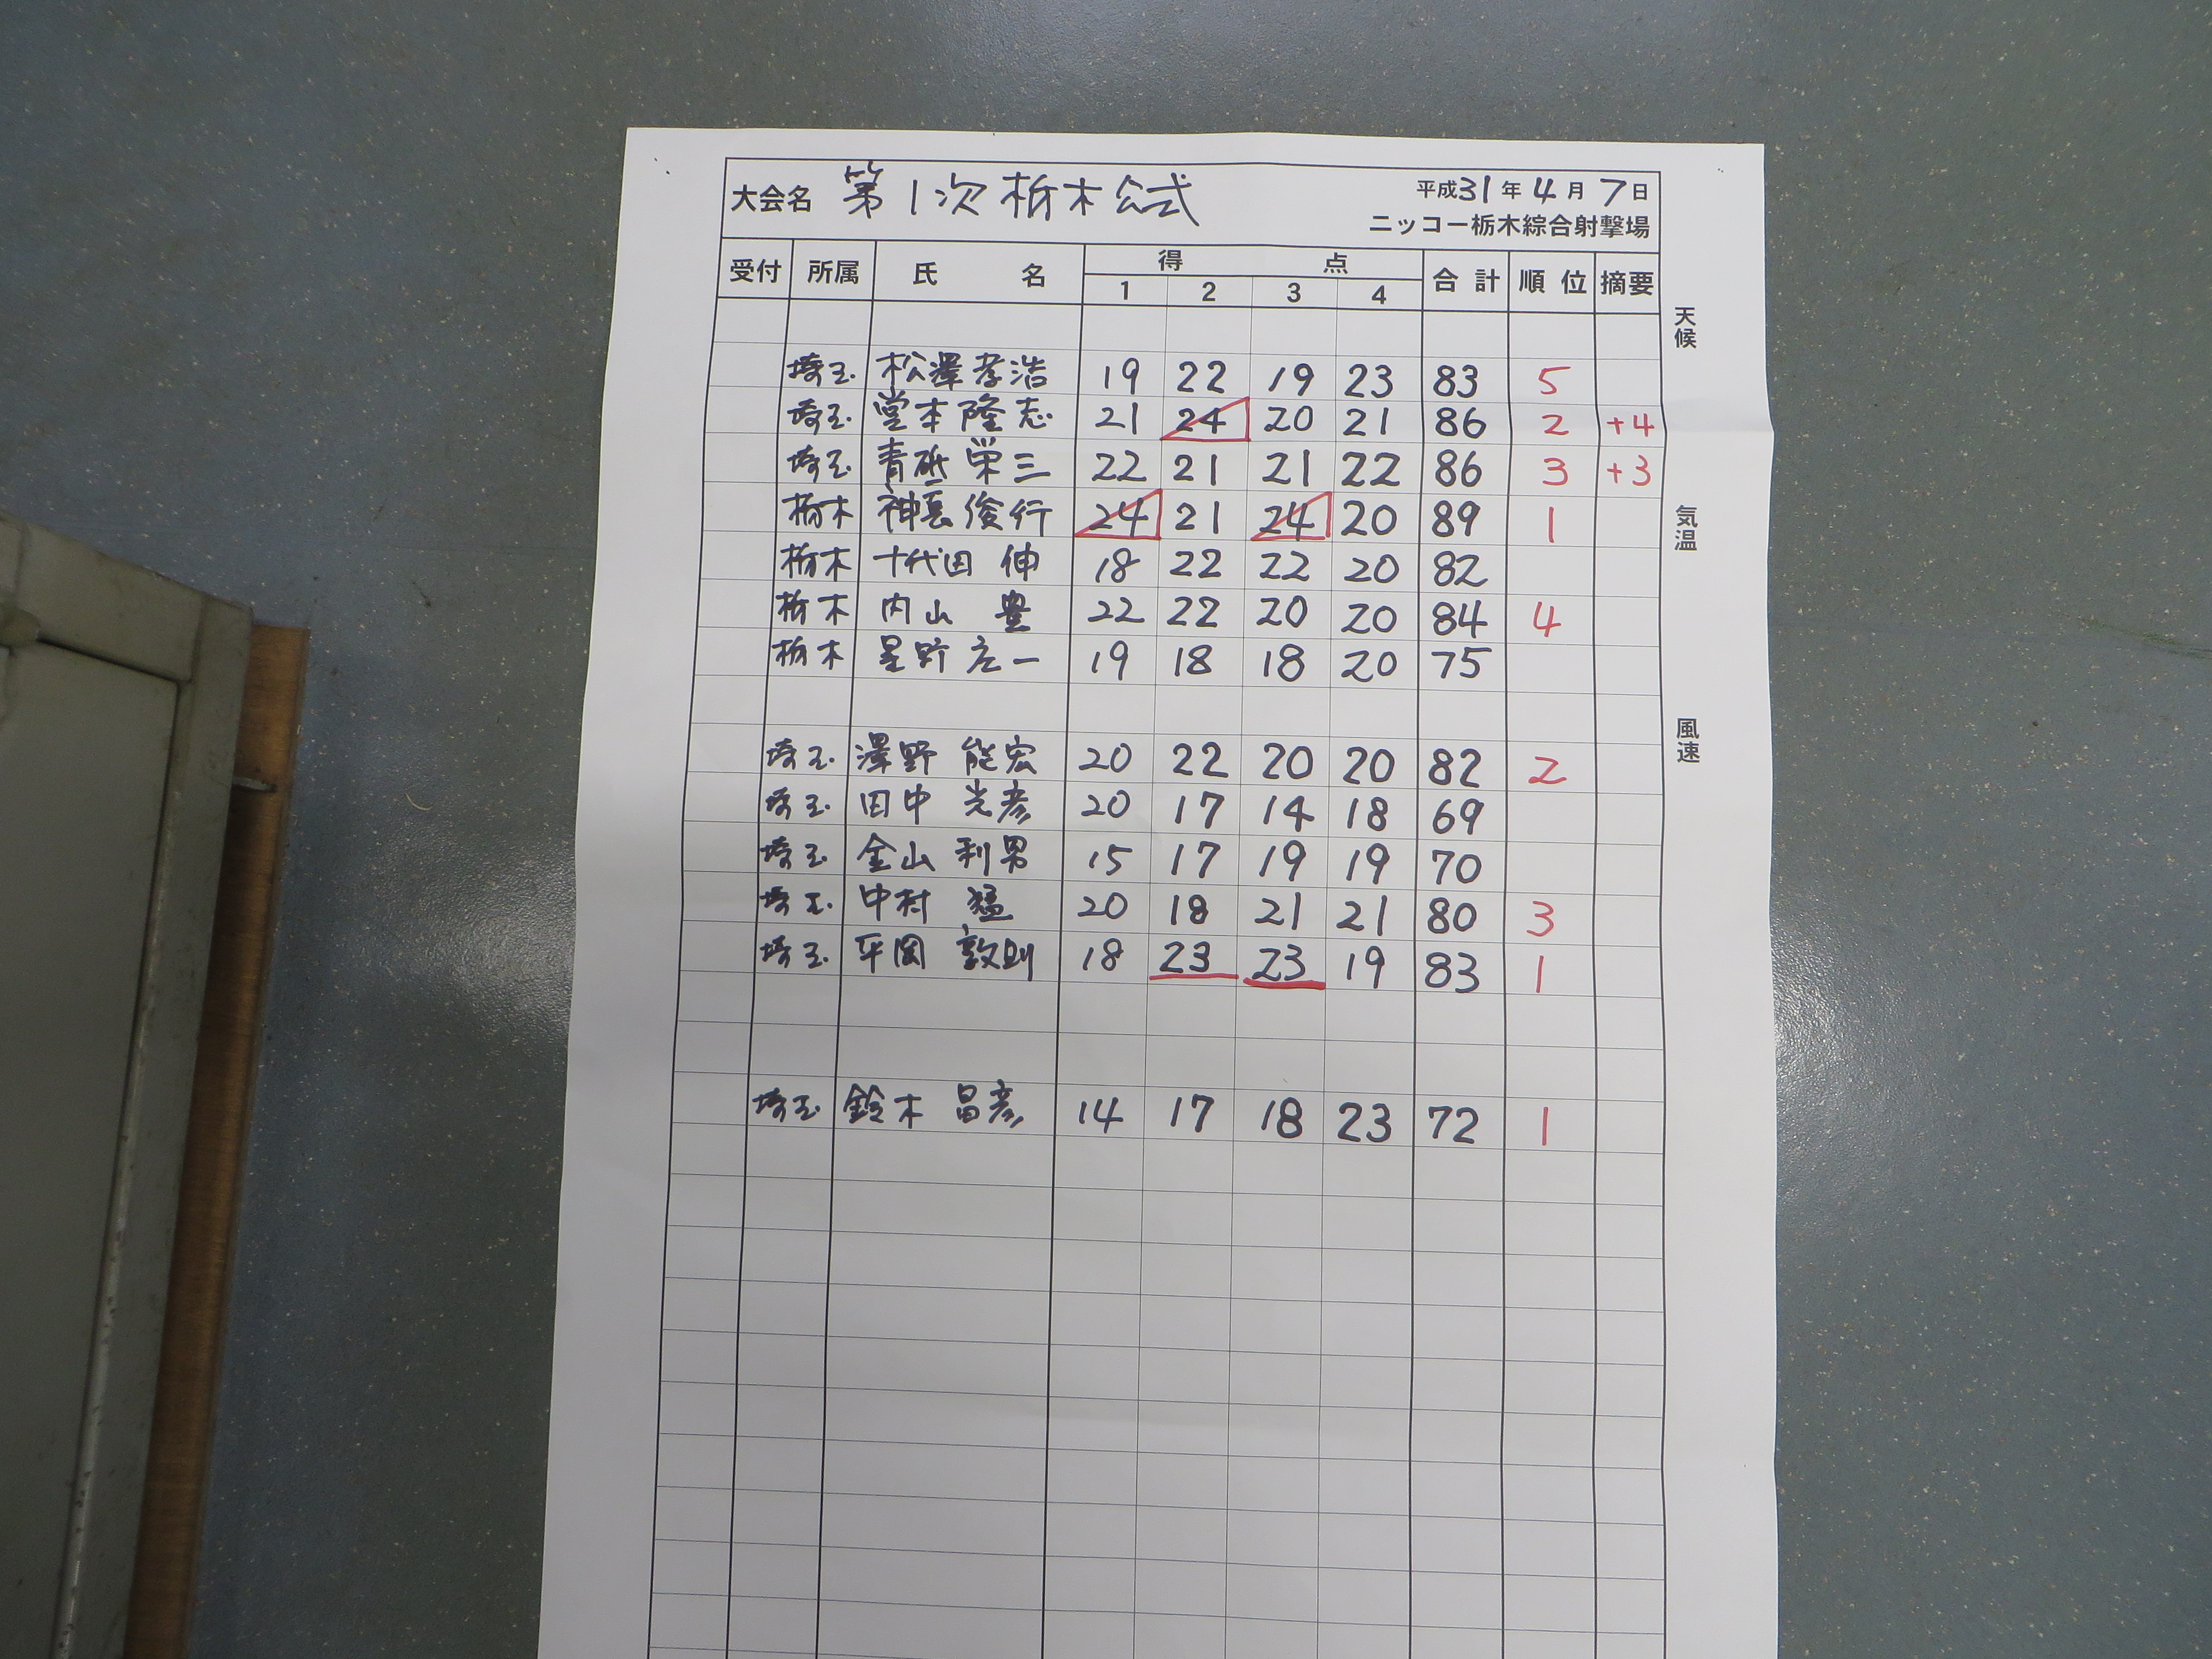 大会名 第1次栃木公式 平成31年4月7日
ニッコー栃木綜合射撃場
受付 所属 氏名 得点 合計 順位 摘要
1 2 3 4
天候
埼玉 松澤孝浩 19 22 19 23 83 5
埼玉 堂本隆志 21 24 20 21 86 2 +4
埼玉 青砥栄三 22 21 21 22 86 3 +3
栃木 俊行 24 21 24 20 89 1
気温
栃木 十代田 伸 18 22 22 20 82
栃木 内山 豊 22 22 20 20 84 4
栃木 星野庄一 19 18 18 20 75
風速
埼玉 澤野 能宏 20 22 20 20 82 2
埼玉 田中 光彦 20 17 14 18 69
埼玉 金山 利男 15 17 19 19 70
埼玉 中村 猛 20 18 21 21 80 3
埼玉 平岡 敦則 18 23 23 19 83 1
埼玉 鈴木 昌彦 14 17 18 23 72 1